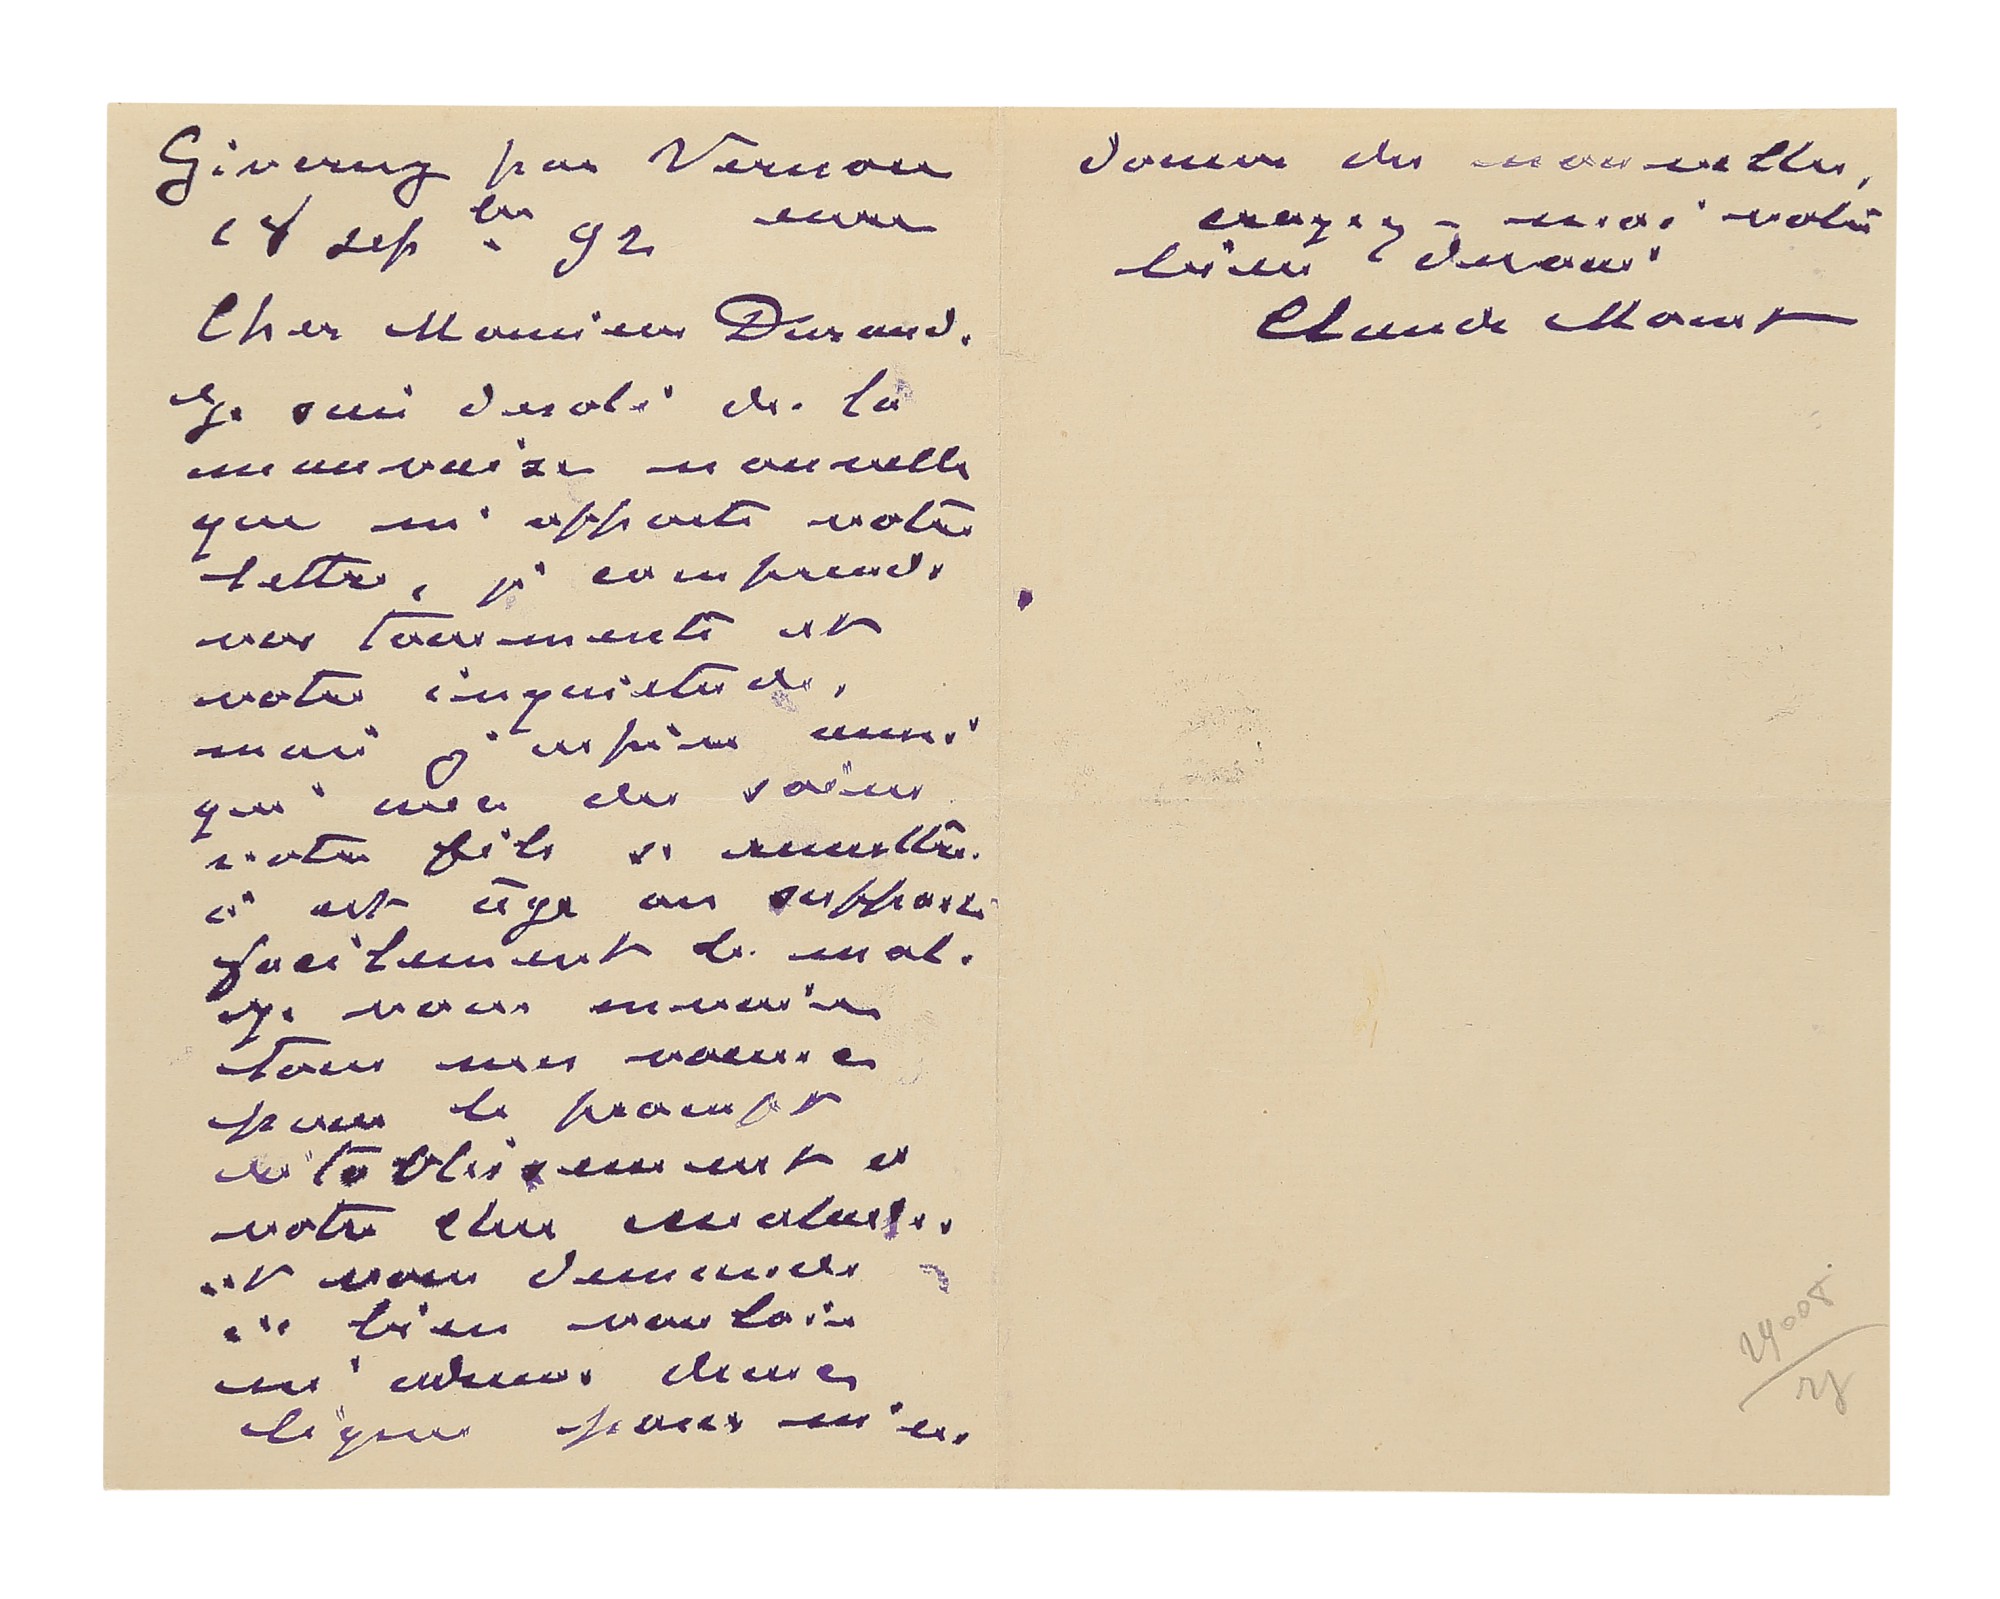 Giverny par Vernon
eure
18 sepbre 92
Cher Monsieur Durand.
Je suis desolé de la
mauvaise nouvelle
que m'apporte votre
lettre, je comprends
vos tourments et
votre inquietude,
mais j'espère aussi
qu'avec des soins
votre fils se remettra.
à cet âge on supporte
facilement le mal.
Je vous envoie
tous mes voeux
pour le prompt
retablissement de
votre cher malade.
et vous demande
de bien vouloir
m'adresser deux
lignes pour m'en
donner des nouvelles,
croyez-moi votre
bien devoué
Claude Monet